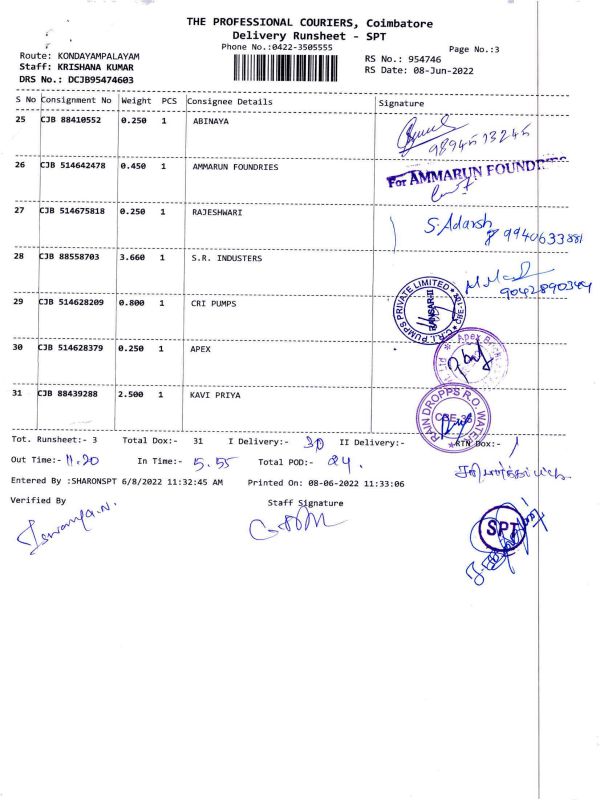 THE PROFESSIONAL COURIERS, Coimbatore
Delivery Runsheet - SPT
Phone No.:0422-3505555
Page No.:3
Route: KONDAYAMPALAYAM
Staff: KRISHANA KUMAR
DRS No.: DCJB95474603
RS No.: 954746
RS Date: 08-Jun-2022
S No Consignment No Weight PCS Consignee Details Signature
25 CJB 88410552 0.250 1 ABINAYA
26 CJB 514642478 0.450 1 AMMARUN FOUNDRIES
For AMMARUN FOUNDRIES
27 CJB 514675818 0.250 1 RAJESHWARI
S. Adarsh
9940633881
28 CJB 88558703 3.660 1 S.R. INDUSTERS
9042890344
29 CJB 514628209 0.800 1 CRI PUMPS
C.R.I. PUMPS PRIVATE LIMITED
30 CJB 514628379 0.250 1 APEX
Apex
31 CJB 88439288 2.500 1 KAVI PRIYA
RAIN DROPPS R.O. WATER
Tot. Runsheet:- 3 Total Dox:- 31 I Delivery:- 30 II Delivery:- RTN Dox:- 1
Out Time:- 11.20 In Time:- 5.55 Total POD:- 24.
Entered By :SHARONSPT 6/8/2022 11:32:45 AM Printed On: 08-06-2022 11:33:06
Verified By Staff Signature
SPT